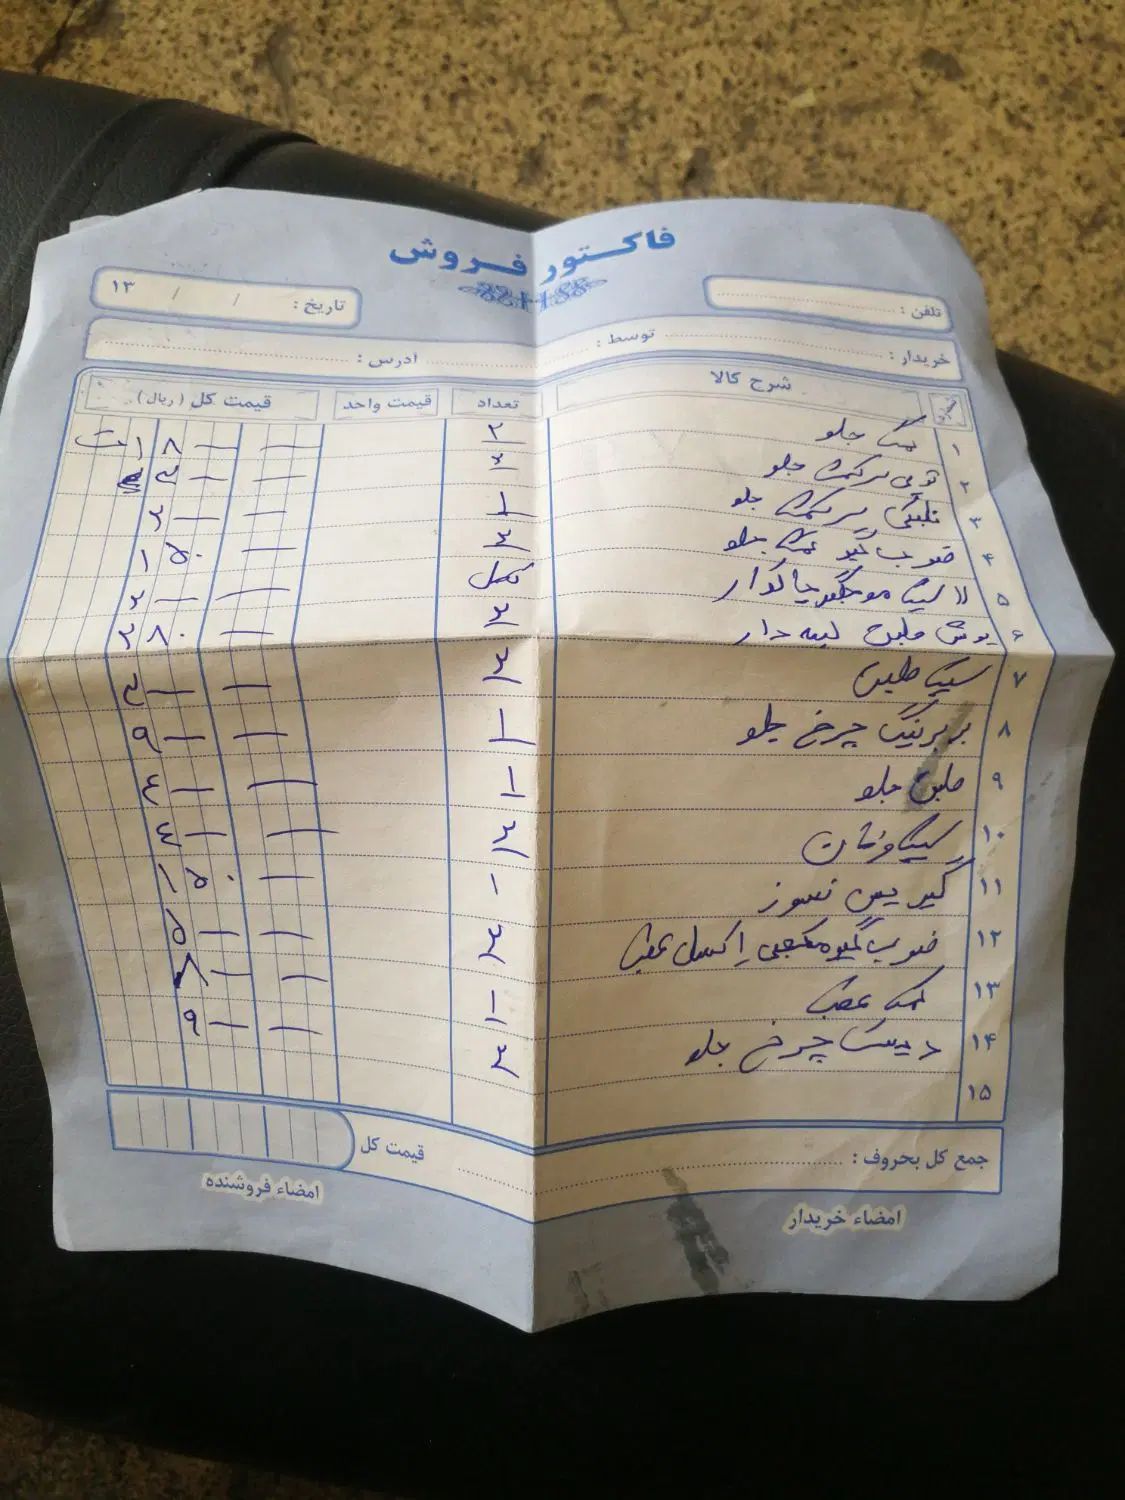 فاکتور فروش
تلفن :
تاریخ : / / ۱۳
خریدار : توسط : ادرس :
شرح کالا تعداد قیمت واحد قیمت کل ( ریال )
۱ کمک جلو ۲ ۱۸ — —
۲ توپی سر کمک جلو ۲ ۳ — —
۳ سر کمک جلو ۱ ۲ — —
۴ ضربه گیر کمک جلو ۲ ۱۵۰ —
۵ کامل ۲ — —
۶ بوش طبق لبه دار ۲ ۲۸۰ —
۷ سیبک طبق ۲ ۳ — —
۸ بلبرینگ چرخ جلو ۱ ۹ — —
۹ طبق جلو ۱ ۴ — —
۱۰ سیبک فرمان ۲ ۴ — —
۱۱ گیریس نسوز - ۱۵۰ —
۱۲ ضربه گیر اکسل عقب ۲ ۵ — —
۱۳ کمک عقب ۱ ۸ — —
۱۴ دیسک چرخ جلو ۲ ۹ — —
۱۵
جمع کل بحروف : قیمت کل
امضاء خریدار امضاء فروشنده